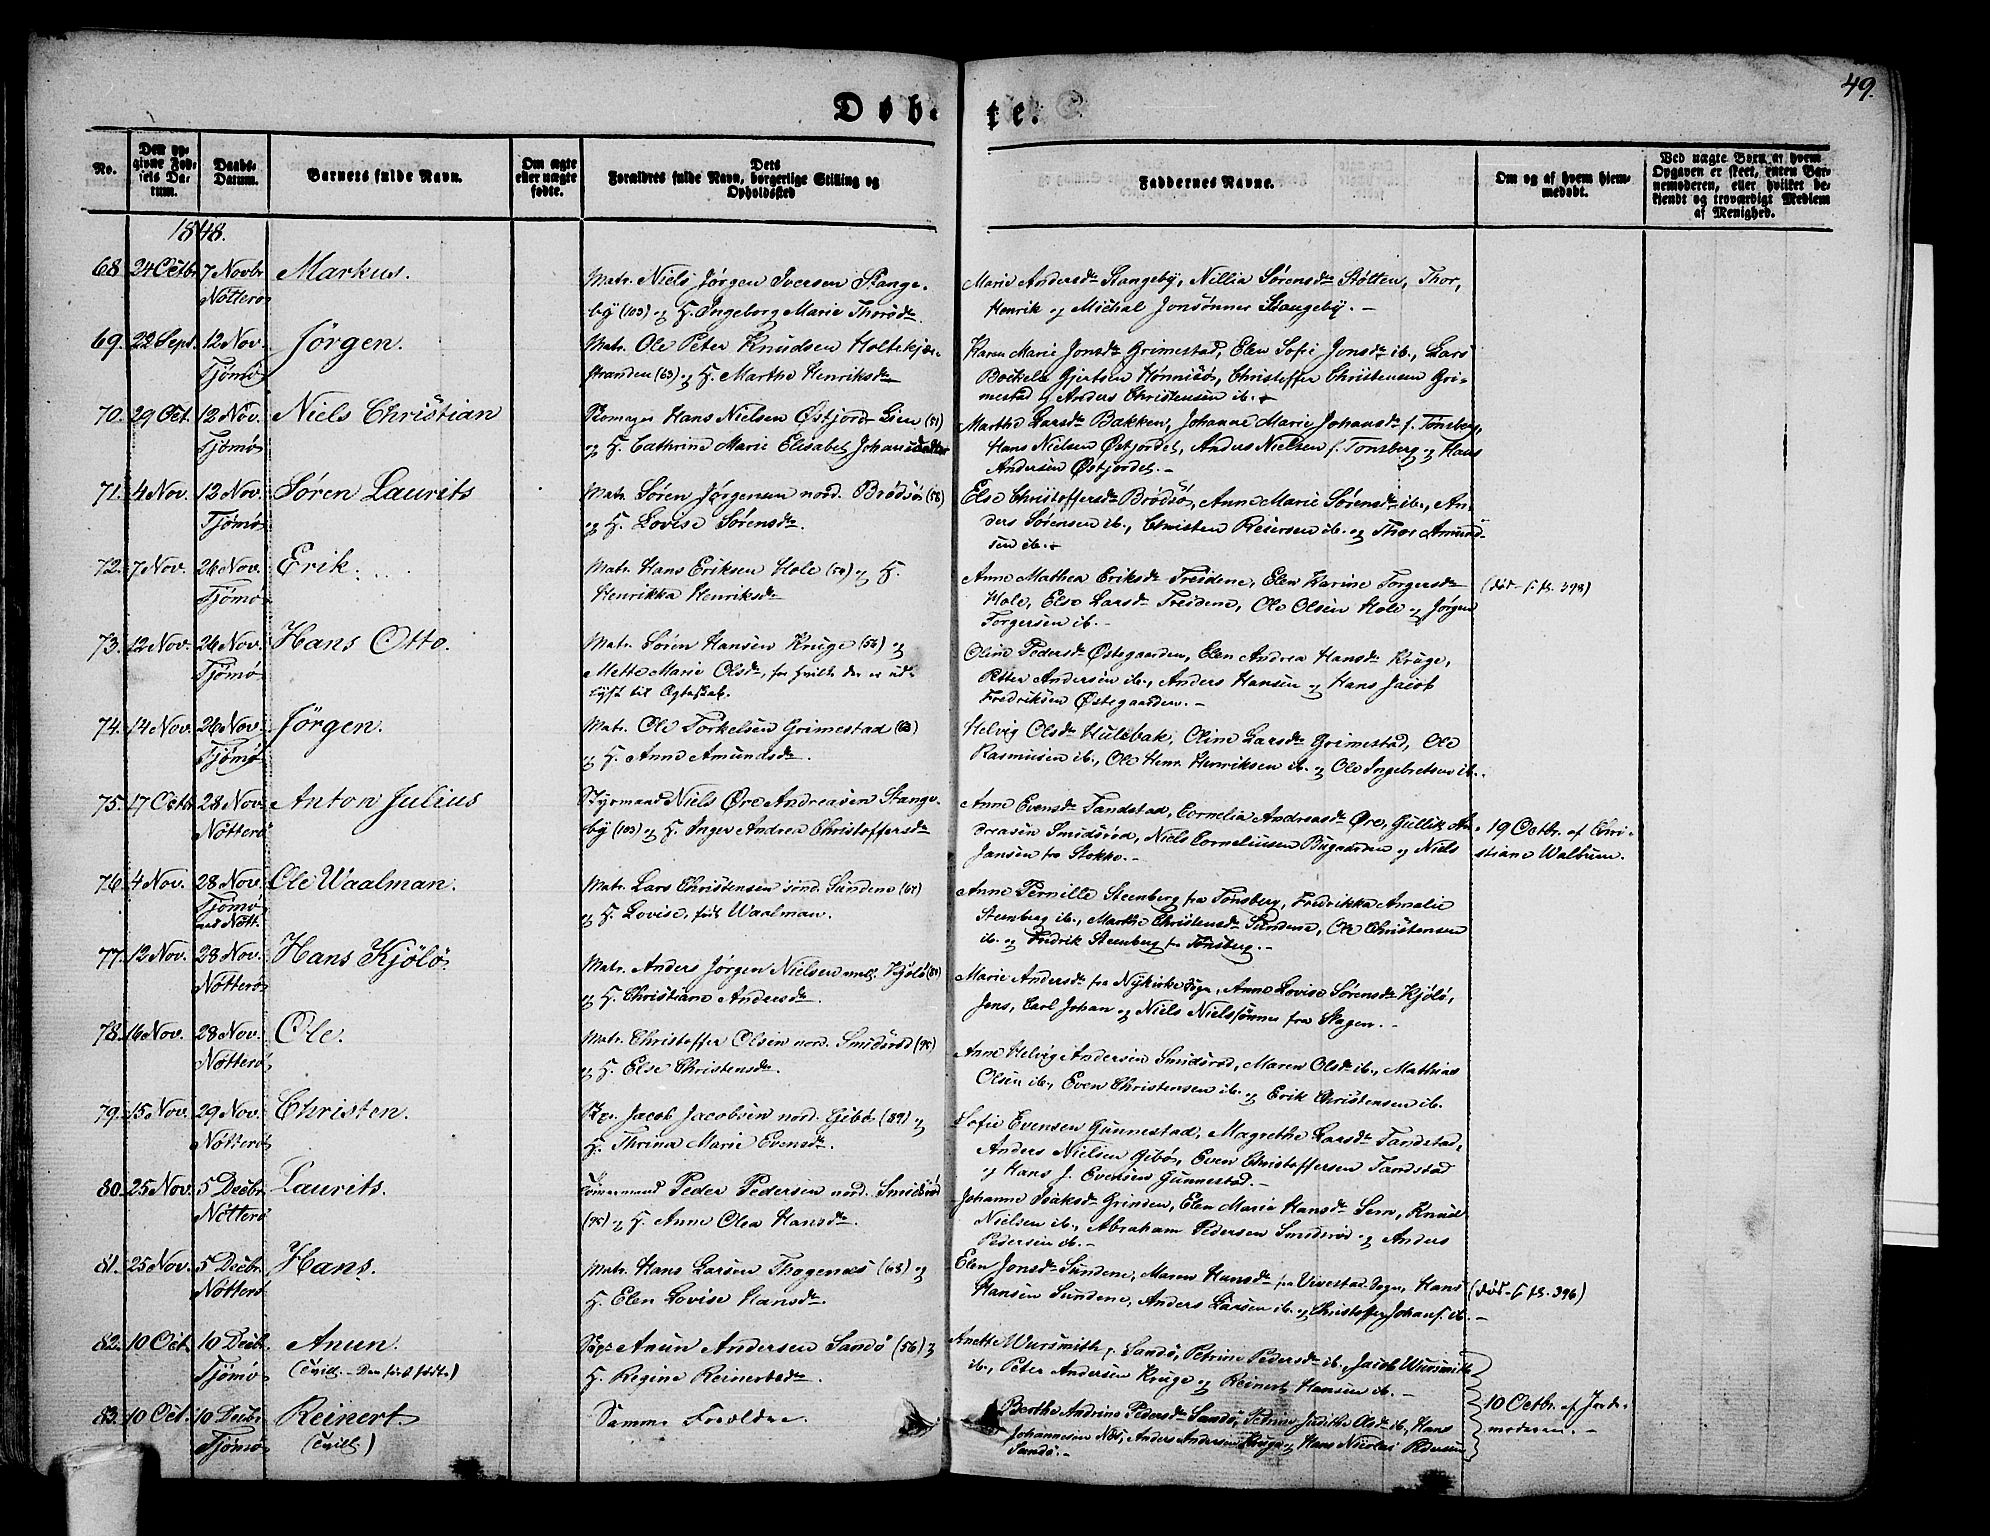 49.
Døbte.
No.
Den opgivne Fødsels Datum.
Daabs-Datum.
Barnets fulde Navn.
Om ægte eller uægte fødte.
Dets Forældres fulde Navn, borgerlige Stilling og Opholdssted
Faddernes Navne.
Om og af hvem hjemmedøbt.
Ved uægte Børn af hvem Opgaven er skeet, enten Barnemoderen, eller hvilket bekjendt og troværdigt Medlem af Menighed.
1848.
68. 24 Octbr. 7 Novbr. Nötterö Markus.
Matr. Niels Jørgen Iversen Stange-
by (103) og H. Ingeborg Marie Thorsdr.
Marie Andersdr Stangeby, Nillia Sörensdr Stölten, Thor,
Henrik og Michal Jonsönner Stangeby. -
69. 22 Sept. 12 Nov. Tjömø Jörgen.
Matr. Ole Peter Knudsen Holtekjær-
stranden (63) og H. Marthe Henriksdr
Karen Marie Jonsdr Grimestad, Elen Sofie Jonsdr ib., Lars
Bockela Gjertsen Hönnisö, Christoffer Christensen Gri-
mestad og Anders Christensen ib. -
70. 29 Oct. 12 Nov. Tjömø Niels Christian
Skomager Hans Nielsen Østjordr Lien (51)
og H. Cathrine Marie Elisabet Johansdatter
Marthe Larsdr Bakken, Johanne Marie Johansdr f. Tönsberg,
Hans Nielsen Østjordet, Anders Nielsen f. Tonsberg og Hans
Andersen Østjordet. -
71. 4 Nov. 12 Nov. Tjömø Sören Laurits
Matr. Sören Jörgensen nord. Brödsö (58)
og H. Lovise Sørensdr.
Else Christoffersdr Brödsö, Anne Marie Sörensdr ib., An-
ders Sörensen ib., Christen Reiersen ib. og Thor Amund-
sen ib. -
72. 7 Nov. 26 Nov. Tjömø Erik.
Matr. Hans Eriksen Hole (50) og H.
Henrikka Henriksdr
Anne Mathea Eriksdr Treidene, Elen Karine Torgersdr
Hole, Else Larsdr Treidene, Ole Olsen Hole og Jörgen
Torgersen ib. -
(död - S. 398)
73. 12 Nov. 26 Nov. Tjömø Hans Otto.
Matr. Sören Hansen Kruge (56) og
Mette Marie Olsdr, for hvilke der er ud-
lyst til Ægteskab.
Oline Pedersdr Østegaarden, Elen Andrea Hansdr Kruge,
Petter Andersen ib., Anders Hansen og Hans Jacob
Fredriksen Østegaarden. -
74. 14 Nov. 26 Nov. Tjömø Jörgen.
Matr. Ole Torkelsen Grimestad (62)
og H. Anne Amundsdr.
Helvig Olsdr Hulebak, Oline Larsdr Grimestad, Ole
Rasmusen ib., Ole Henr. Henriksen ib. og Ole Ingebretsen ib.
75. 17 Octb. 28 Nov. Nötterö Anton Julius
Styrmand Niels Øre Andreasen Stange-
by (103) og H. Inger Andrea Christoffersdr
Anne Evensdr Tandstad, Cornelia Andreasdr Øre, Gullik An-
dreasen Smidsröd, Niels Corneliusen Bugaarden og Niels
Jansen fra Stokke. -
19 Octbr. af Chri-
stiane Walbum.
76. 4 Nov. 28 Nov. Tjömø ved Nött. Ole Waalman.
Matr. Lars Christensen sönd. Sundene (67)
og H. Lovise, föd Waalman.
Anne Pernille Steenberg fra Tønsberg, Fredrikka Amalie
Steenberg ib., Marthe Christensdr Sundene, Ole Christensen
ib. og Fredrik Steenberg fra Tönsberg. -
77. 12 Nov. 28 Nov. Nötterö Hans Kjölö.
Matr. Anders Jörgen Nielsen mell. Kjölö (87)
og H. Christiane Andersdr.
Marie Andersdr fra Nykirke Sogn, Anne Lovise Sörensdr Kjölö,
Jens, Carl Johan og Niels Nielssönner fra Skagen. -
78. 16 Nov. 28 Nov. Nötterö Ole.
Matr. Christoffer Olsen nord. Smidsröd (95)
og H. Else Christensdr.
Anne Helvig Andersen Smidsröd, Maren Olsdr ib., Mathias
Olsen ib., Even Christensen ib. og Erik Christensen ib.
79. 15 Nov. 29 Nov. Nötterö Christen.
Skp. Jacob Jacobsen nord. Gibö (89) og
H. Thrina Marie Evensdr.
Sofie Evensen Gunnestad, Magrethe Larsdr Tandstad,
Anders Nielsen Gibö, Even Christoffersen Tandstad
og Hans J. Evensen Gunnestad. -
80. 25 Nov. 5 Decbr. Nötterö Laurits.
Tömmermand Peder Pedersen nord. Smidsröd
(95) og H. Anne Olea Hansdr.
Johanne Isaksdr Grinden, Elen Maria Hansdr Sem, Knud
Nielsen ib., Abraham Pedersen Smidsröd og Anders
Pedersen ib. -
81. 25 Nov. 5 Decbr. Nötterö Hans.
Matr. Hans Larsen Thagenæs (68) og
H. Elen Lovise Hansdr.
Elen Jonsdr Sundene, Maren Hansdr fra Vivestad Sogn, Hans
Hansen Sundene, Anders Larsen ib. og Christoffer Johans. ib. -
(död - S. 396)
82. 10 Oct. 10 Decbr. Tjömø Anun.
(Tvill. - Den först födte)
Skp. Anun Andersen Sandö (56) og
H. Regine Reinertsdr.
Anette Wursmith f. Sandö, Petrine Pedersdr ib., Jacob Wursmith
ib., Peter Andersen Kruge og Reinert Hansen ib. -
83. 10 Oct. 10 Decbr. Tjömø Reinert
(Tvill.)
Samme Forældre.
Berthe Andrine Pedersdr Sandö, Petrine Judithe Olsdr ib., Hans
Johannesen Næs, Anders Andersen Kruge og Hans Nicolai Pedersen
Sandö. -
10 Octbr. af Jorde-
moderen. -